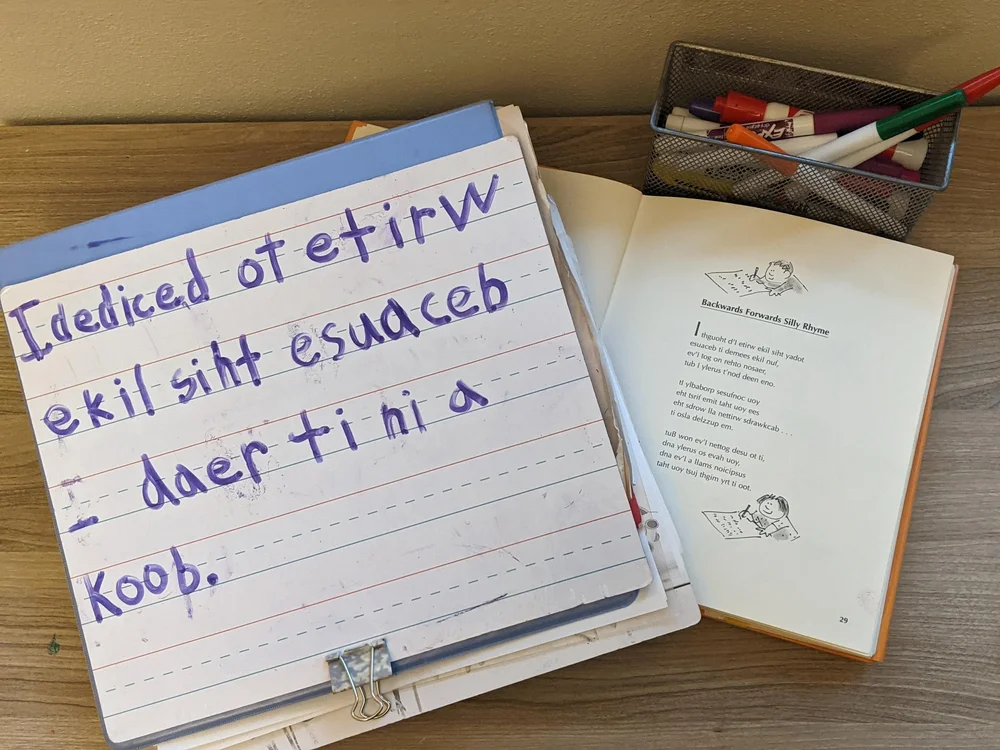 I dediced ot etirw
ekil siht esuaceb
I daer ti ni a
koob.
Backwards Forwards Silly Rhyme
I thguoht d'I etirw ekil siht yadot
esuaceb ti demees ekil nuf,
ev'I tog on rehto nosaer,
tub I ylerus t'nod deen eno.
tI ylbaborp sesufnoc uoy
eht tsrif emit taht uoy ees
eht sdrow lla nettirw sdrawkcab . . .
ti osla delzzup em.
tuB won ev'I nettog desu ot ti,
dna ylerus os evah uoy,
dna ev'I a llams noicipsus
taht uoy tsuj thgim yrt ti oot.
29